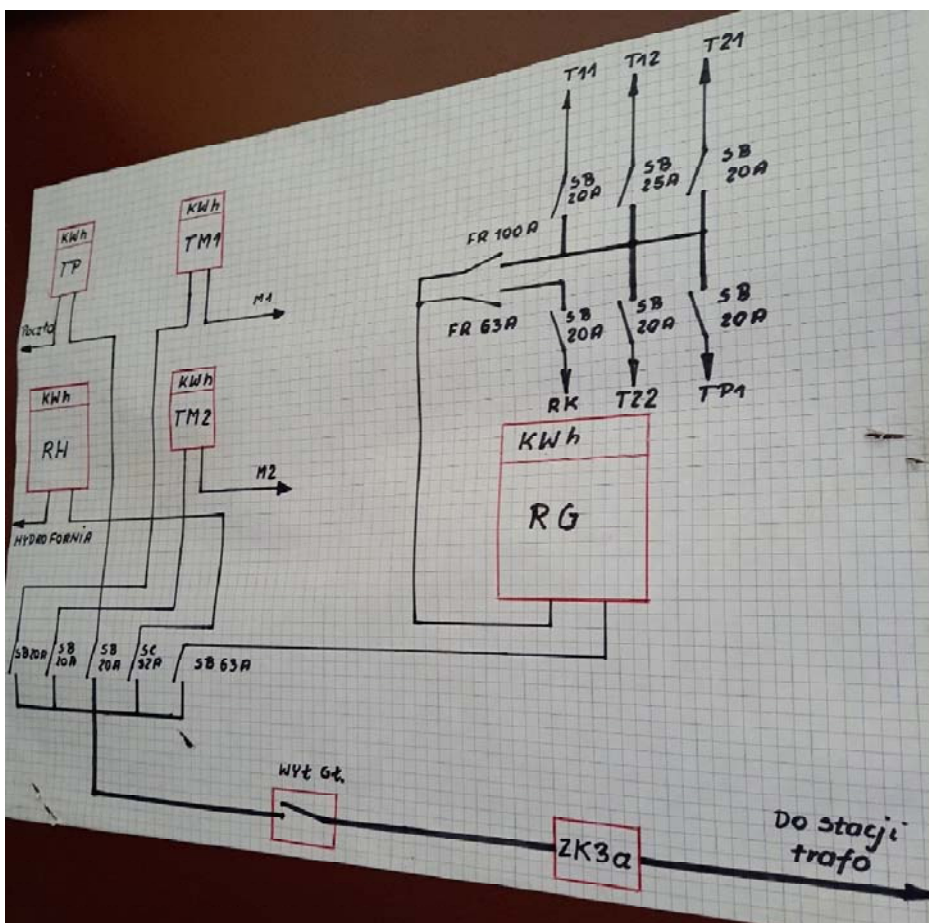 T11
T12
T21
SB
20A
SB
25A
SB
20A
FR 100A
FR 63A
SB
20A
SB
20A
SB
20A
RK
TZ2
TP1
KWh
RG
KWh
TP
Poczta
KWh
TM1
M1
KWh
RH
HYDROFORNIA
KWh
TM2
M2
SB 20A
SB
20A
SB
20A
SC
32A
SB 63A
WYŁ GŁ.
ZK3a
Do stacji
trafo